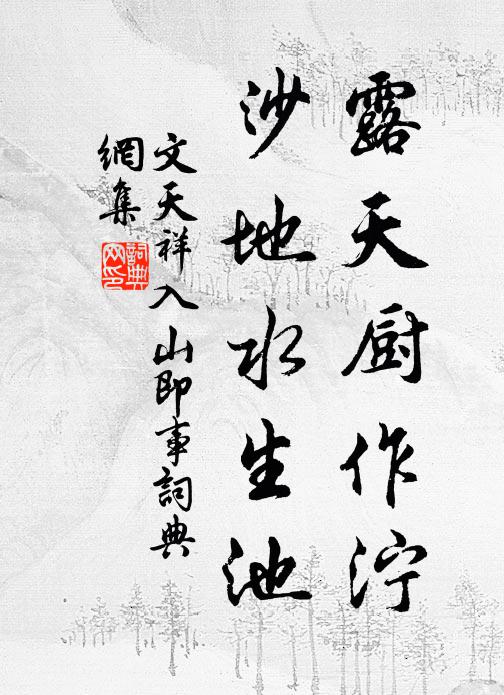 露天厨作泞
沙地水生池
文天祥入山即事詞典
網集
詞典
网印